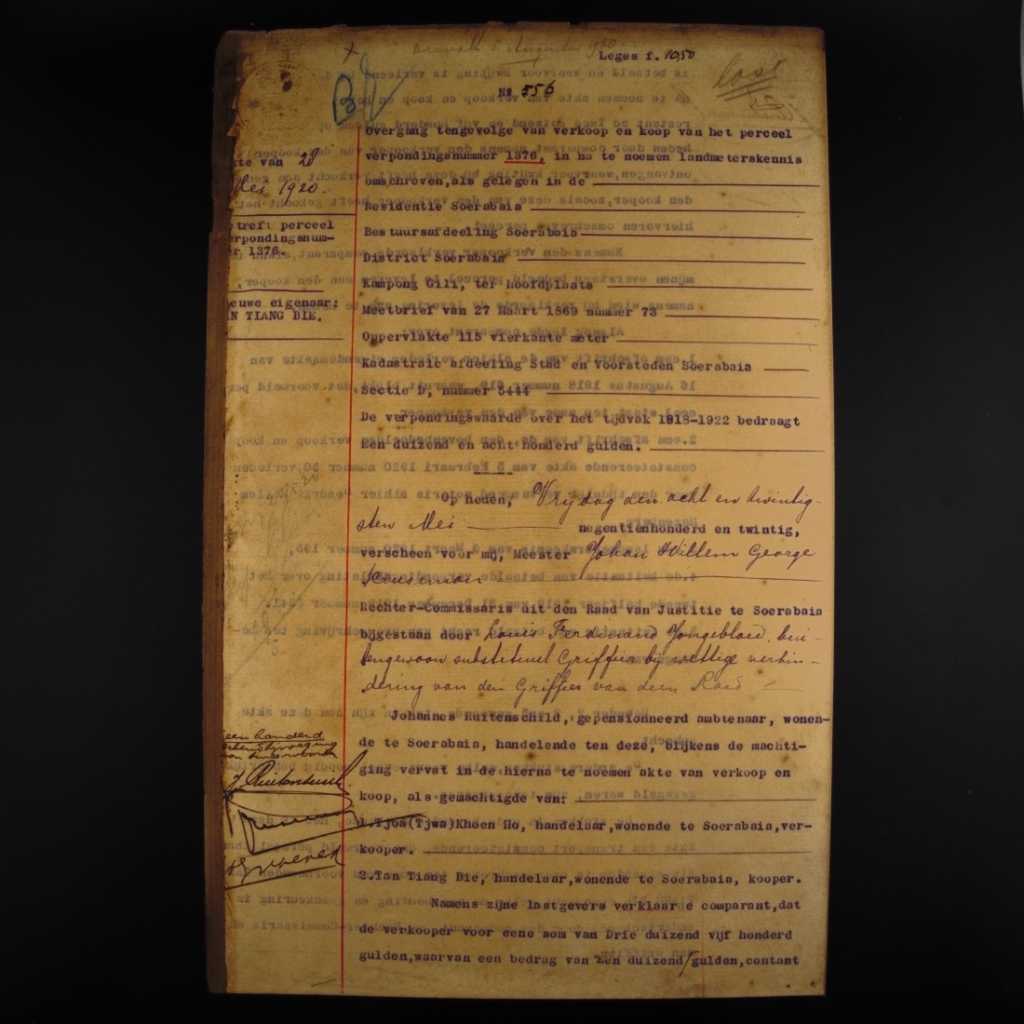 Leges f. 10,50
Nº 556
Overgang tengevolge van verkoop en koop van het perceel
verpondingsnummer 1376, in na te noemen landmeterskennis
omschreven,als gelegen in de
Residentie Soerabaia
Bestuursafdeeling Soerabaia
District Soerabaia
Kampong Gili, ter hoofdplaats
Meetbrief van 27 Maart 1869 nummer 73
Oppervlakte 115 vierkante meter
Kadastrale afdeeling Stad en Voorsteden Soerabaia
Sectie D, nummer 5444
De verpondingswaarde over het tijdvak 1918-1922 bedraagt
Een duizend en acht honderd gulden.
Op heden, Vrijdag den acht en twintig-
sten Mei negentienhonderd en twintig,
verscheen voor mij, Meester Johan Willem George
Rechter-Commissaris uit den Raad van Justitie te Soerabaia
bijgestaan door Louis Ferdinand Jongebloed, bui-
tengewoon substituut Griffier bij wettige verhin-
dering van den Griffier van dien Raad
Johannes Ruitenschild, gepensionneerd ambtenaar, wonen-
de te Soerabaia, handelende ten deze, blijkens de machti-
ging vervat in de hierna te noemen akte van verkoop en
koop, als gemachtigde van:
1.Tjoa(Tjwa)Khoen Ho, handelaar,wonende te Soerabaia,ver-
kooper.
2.Tan Tiang Bie, handelaar,wonende te Soerabaia, kooper.
Namens zijne lastgevers verklaar e comparant,dat
de verkooper voor eene som van Drie duizend vijf honderd
gulden,waarvan een bedrag van Een duizend/gulden,contant
kte van 28
Mei 1920.
etreft perceel
erpondingsnum-
r 1376.
euwe eigenaar:
N TIANG BIE.
een honderd